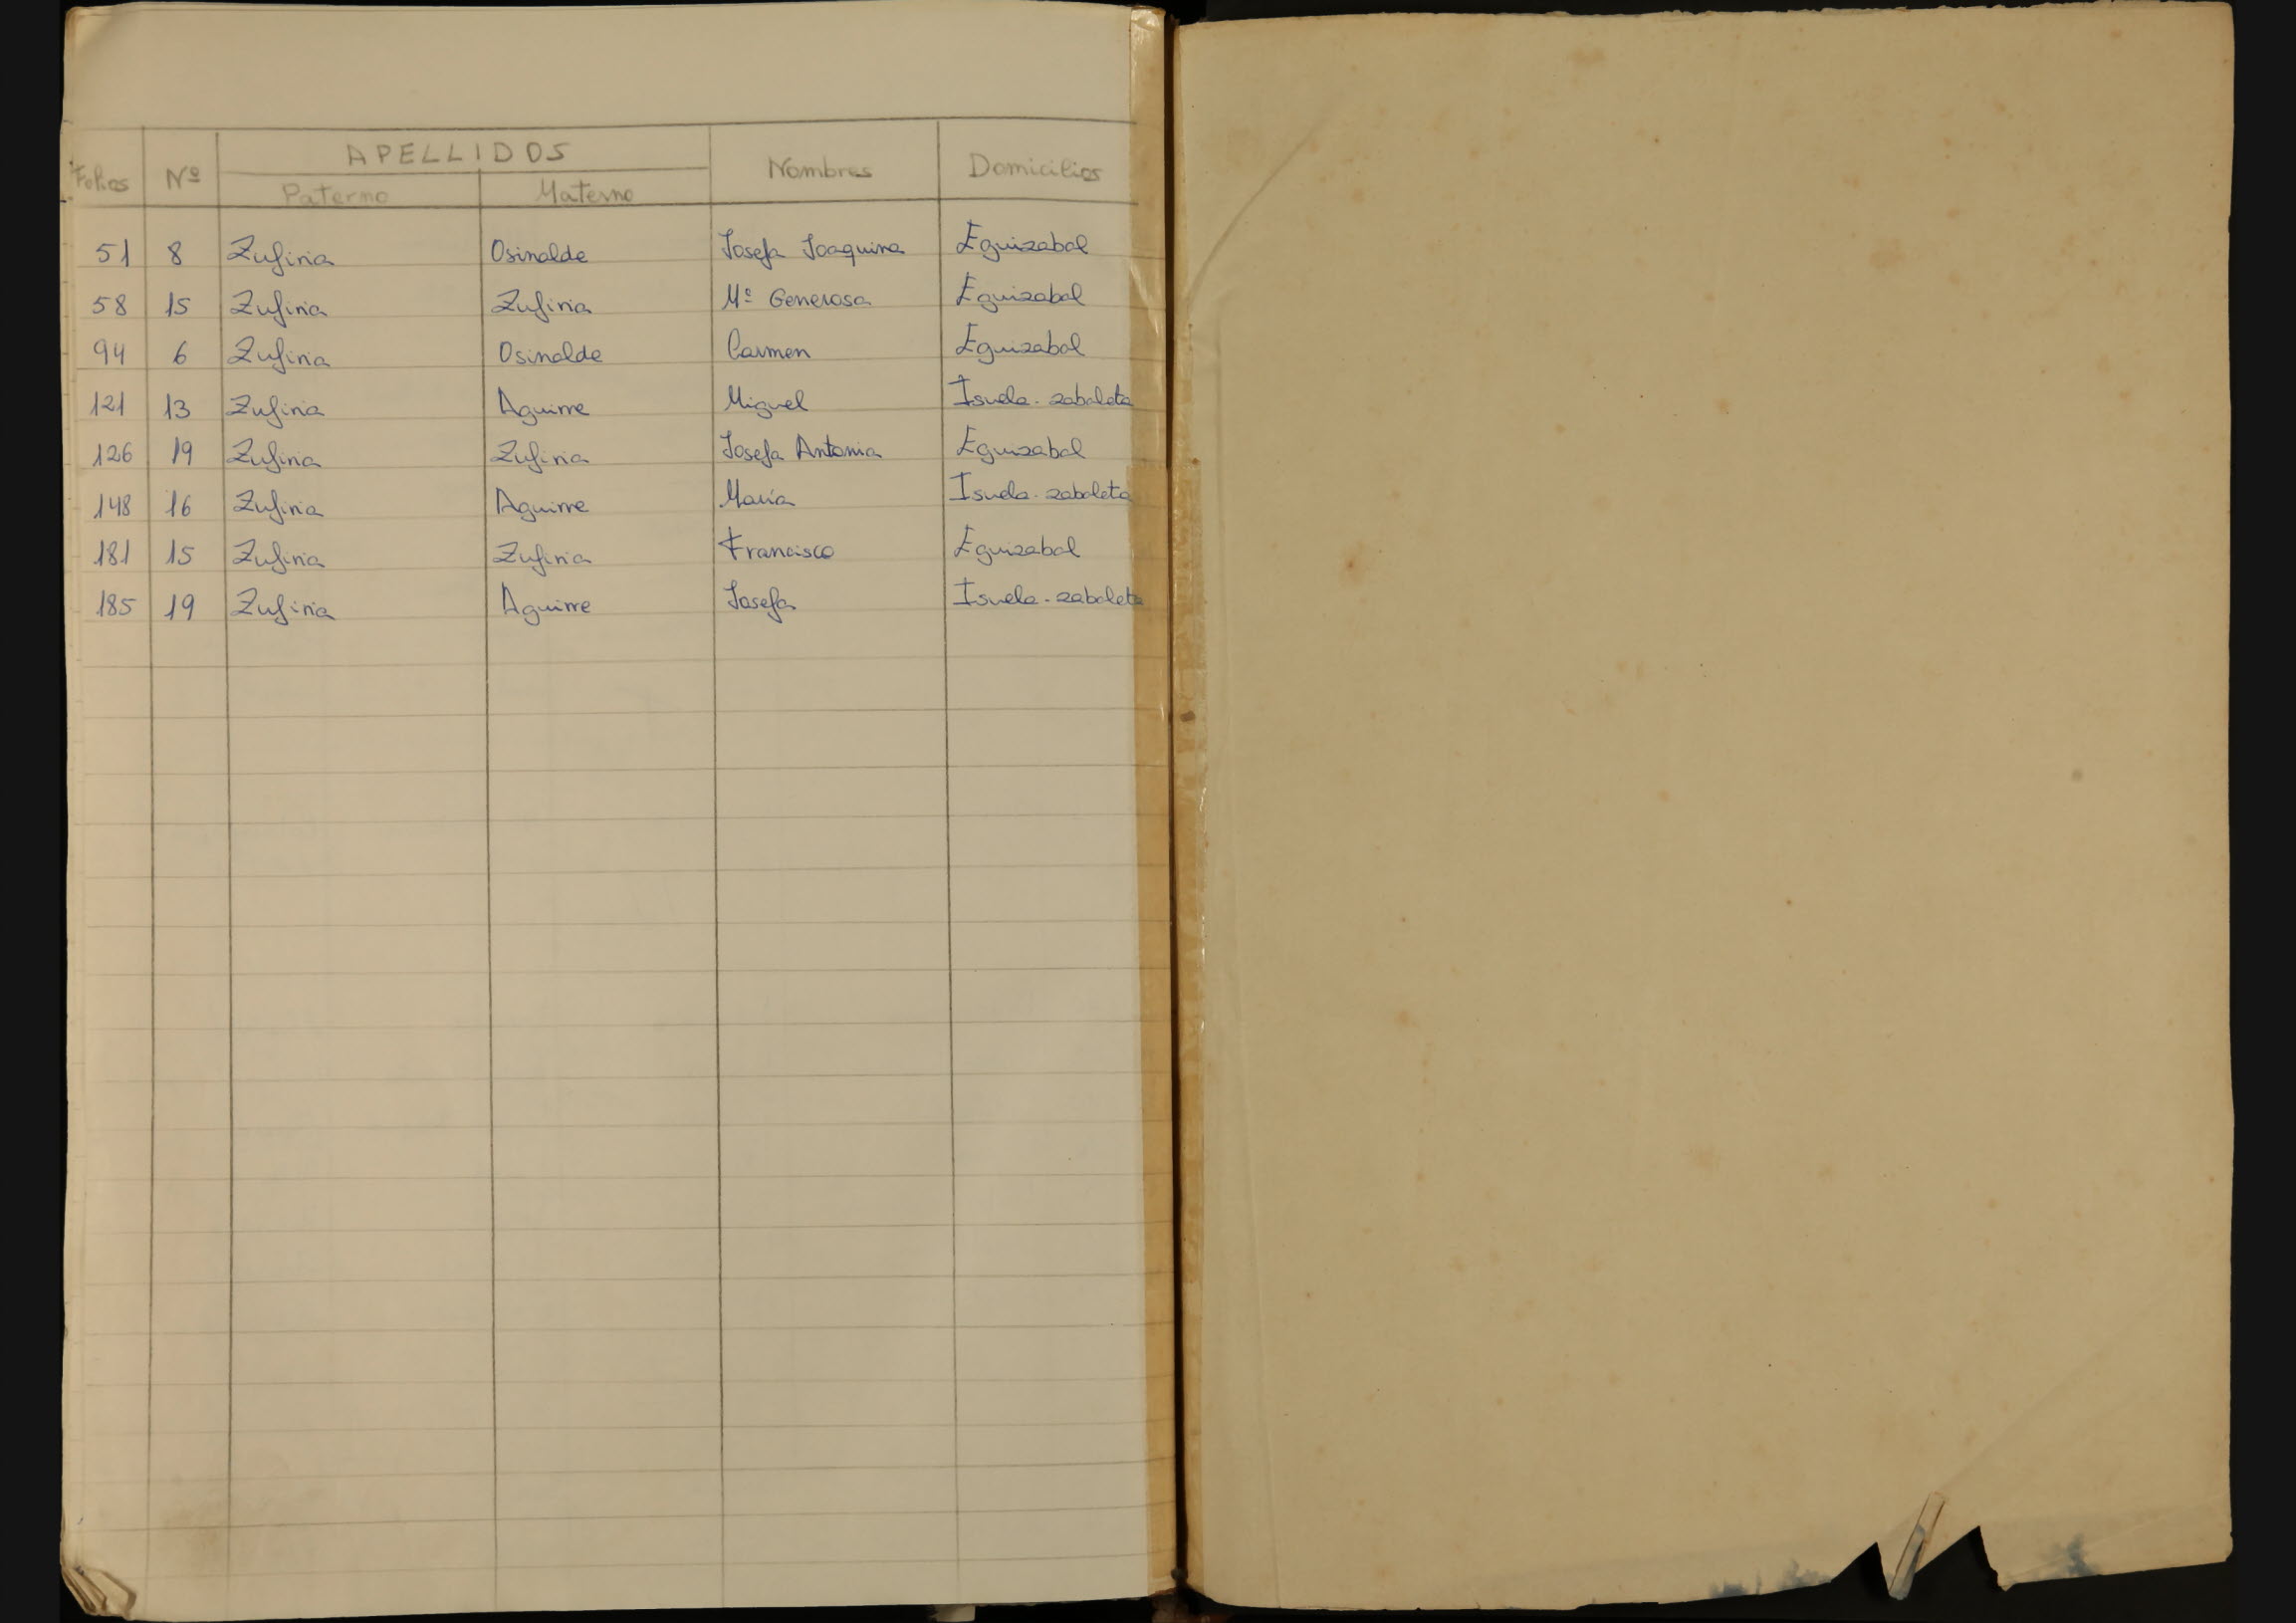 APELLIDOS
Folios Nº Paterno Materno Nombres Domicilios
51 8 Zufiria Osinalde Josefa Joaquina Eguizabal
58 15 Zufiria Zufiria Mª Generosa Eguizabal
94 6 Zufiria Osinalde Carmen Eguizabal
121 13 Zufiria Aguirre Miguel Isuela-zabaleta
126 19 Zufiria Zufiria Josefa Antonia Eguizabal
148 16 Zufiria Aguirre María Isuela-zabaleta
181 15 Zufiria Zufiria Francisco Eguizabal
185 19 Zufiria Aguirre Josefa Isuela-zabaleta